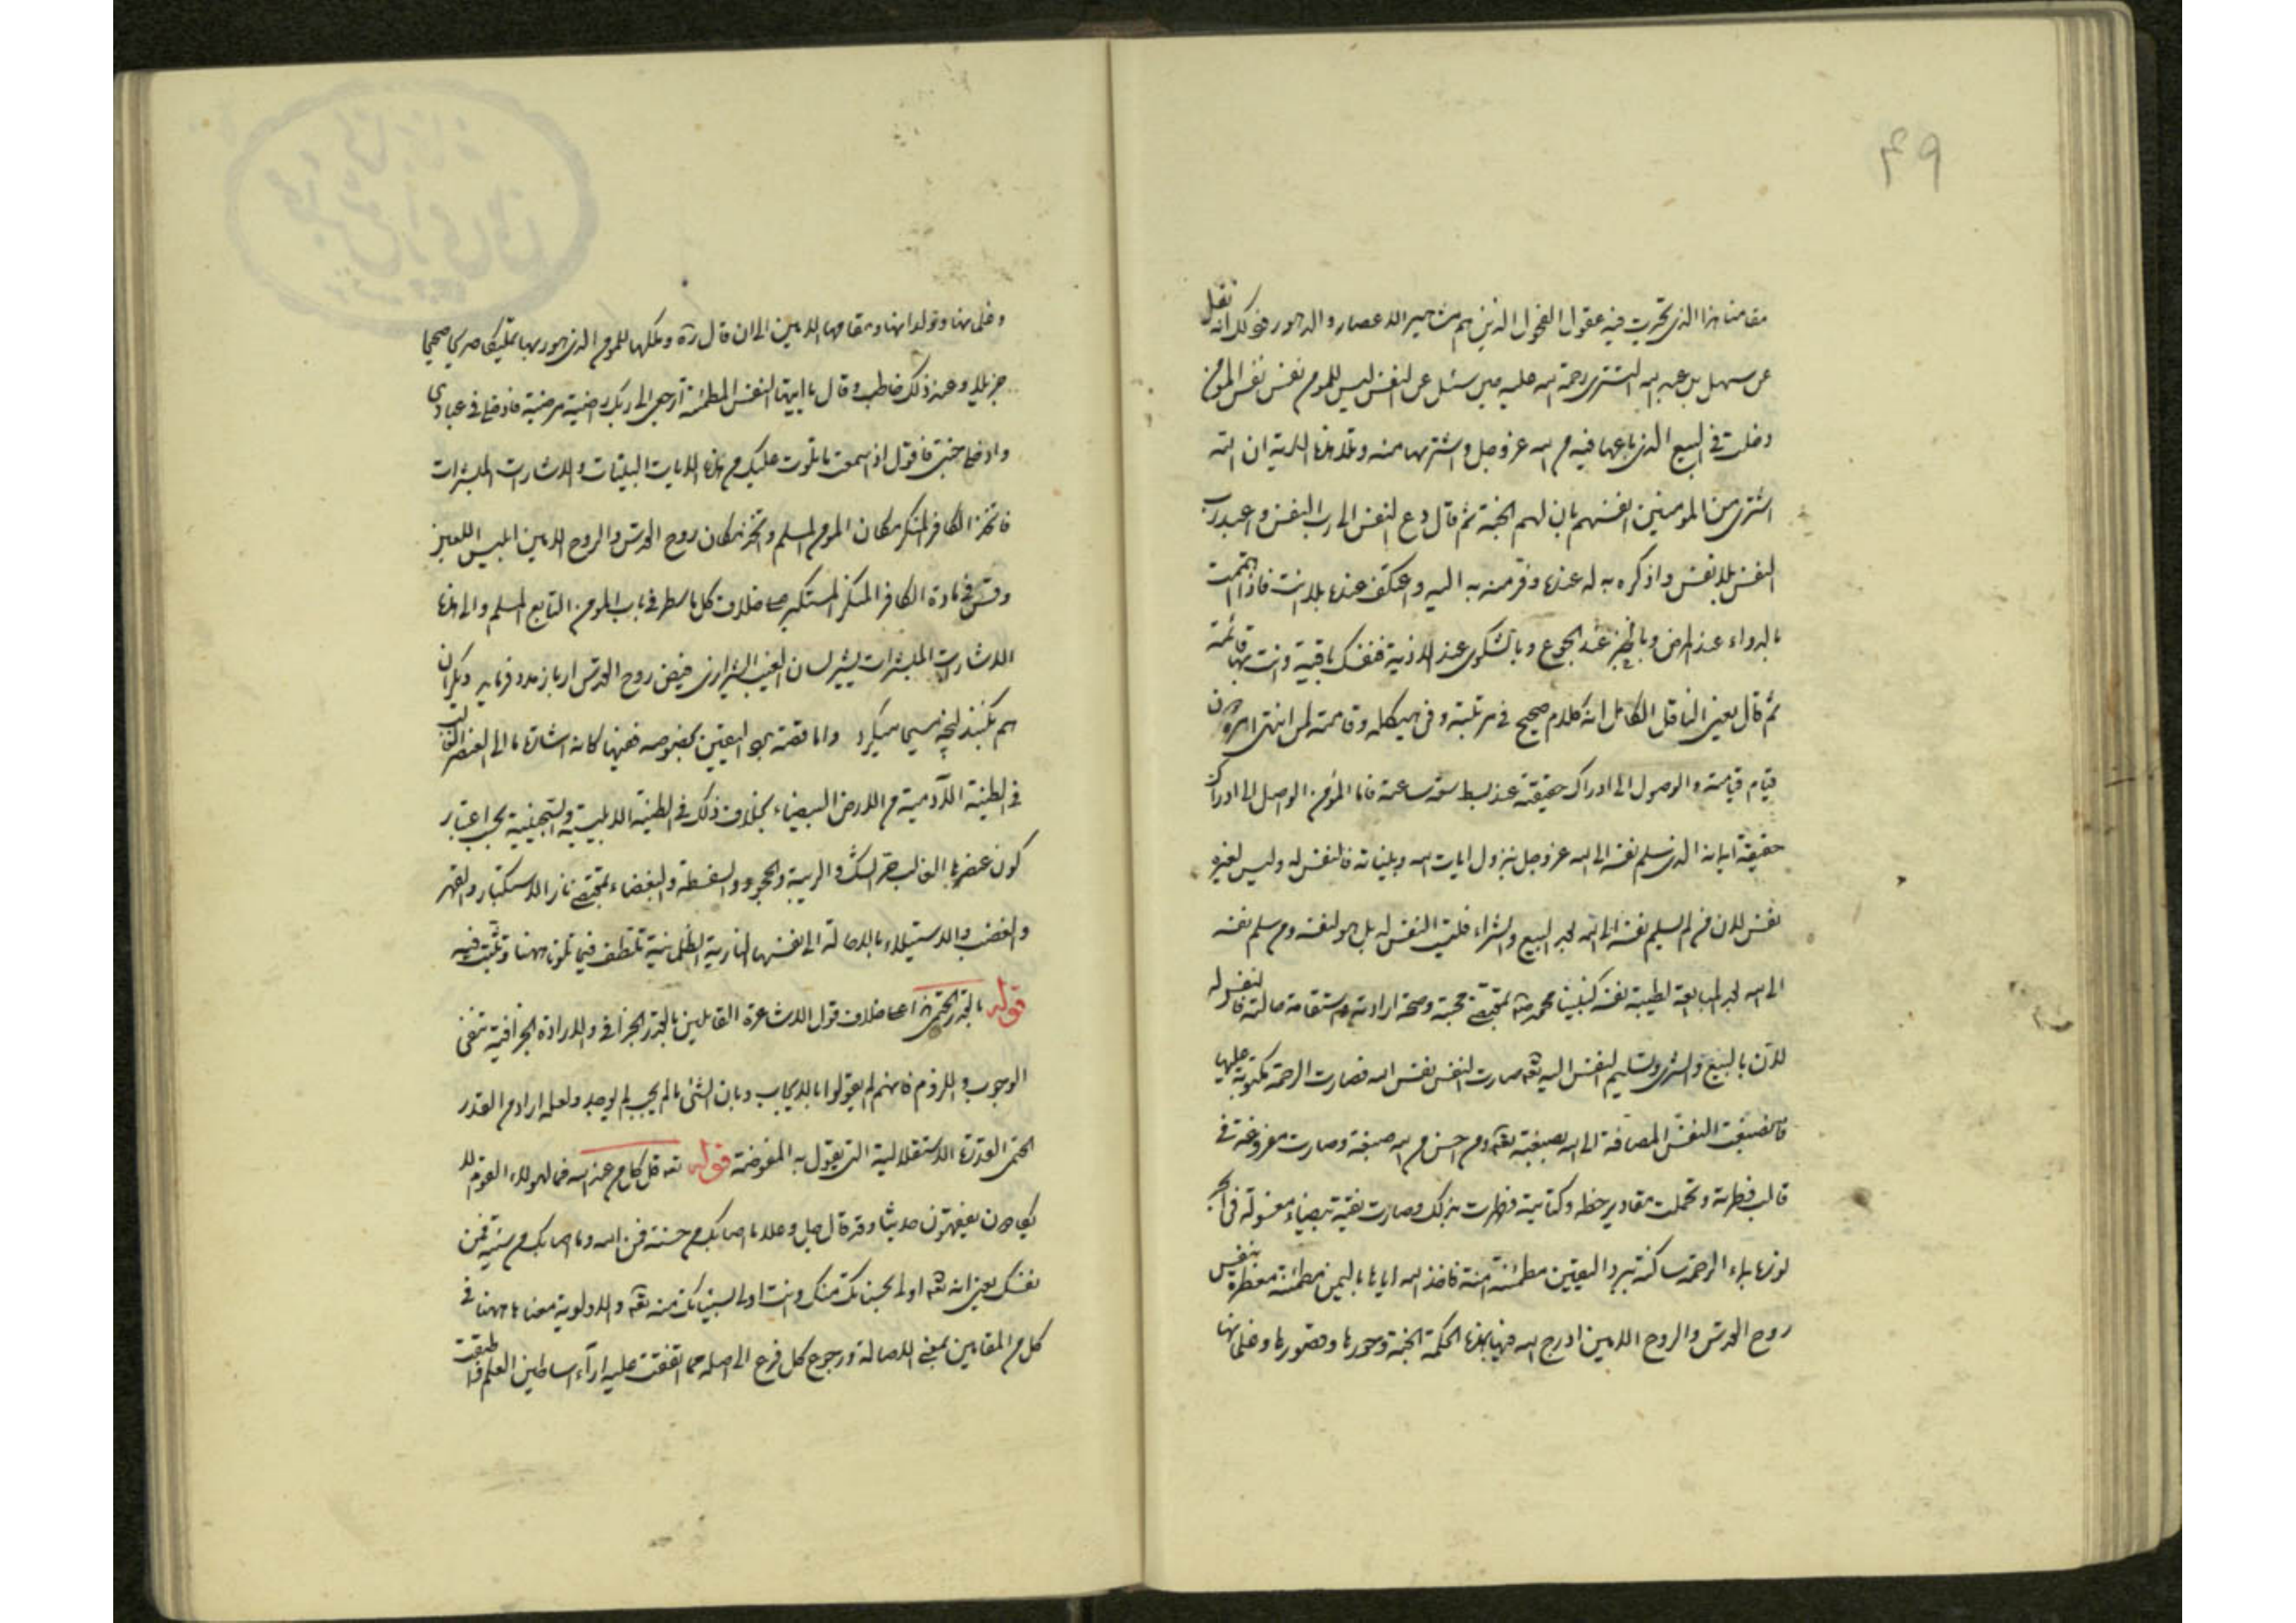 ۴۹
مقامنا هذا الذى تحيرت فيه عقول الفحول الذين هم مشاهير الاعصار والدهور فى ذلك انه نقل
عن سهل بن عبد الله التسترى رحمة الله عليه حين سئل عن النفس ليس للمؤمن نفس نفس المؤمن
دخلت فى البيع الذى باعها فيه من الله عز وجل واشتريها منه وتلا هذه الاية ان الله
اشترى من المؤمنين انفسهم بان لهم الجنة ثم قال دع النفس الى رب النفس واعبد رب
النفس بلا نفس واذكره به له عنده وفر منه به اليه واعتكف عنده بلا انت فاذا اهتممت
بالدواء عند المرض وبالخبز عند الجوع وبالشكوى عند الاذية فنفسك باقية وانت بها قائمة
ثم قال يعنى الناقل الكامل انه كلام صحيح فى مرتبته وفى هيكله وقامته لمن انتهى امره
قيام قيامته والوصول الى ادراك حقيقته عند بسط ساعته فاما المؤمن الواصل الى ادراك
حقيقة ايمانه الذى سلم نفسه الى الله عز وجل بنزول ايات الله وبيناته فالنفس له وليس لغيره
نفس لان من لم يسلم نفسه الى الله لعبد البيع والشراء فليت النفس له بل هو لنفسه ومن سلم نفسه
الى الله المبايعة لطيبة نفسه كنبينا محمد بمقتضى محبته وصحة ارادته واستقامة حالته فالنفس له
لان بالبيع والشرى وتسليم النفس اليه تعه صارت النفس نفس الله فصارت الرحمة مكتوبة عليها
فانصبغت النفس المضافة الى الله بصبغته تعه ومن احسن من الله صبغة وصارت مفروغة فى
قالب فطرته وتحملت مقادير خطه وكتابته فطهرت بذلك وصارت نقية بيضاء مغسولة فى
لونها بماء الرحمة ساكنة ببرد اليقين مطمئنة امنة فاخذ الله اياها باليمين مطمئنة معطرة بنفس
روح القدس والروح الامين ادرج الله فيها بهذه الحكمة الجنة وحورها وقصورها وغلمانها
وغلمانها وولدانها ومقامها الامين الى ان قال ره وملكها للمؤمن الذى هو ربها تمليكا صريحا صحيحا
جزيلا وعند ذلك خاطب وقال يا ايتها النفس المطمئنة ارجعى الى ربك راضية مرضية فادخلى فى عبادى
وادخلى جنتى فاقول اذا سمعت ما تلوت عليك من هذه الايات البينات والاشارات المبشرات
فاتخذ الكافر المنكر مكان المؤمن المسلم واتخذ مكان روح القدس والروح الامين ابليس اللعين
وقس فى مادة الكافر المنكر المستكبر على خلاف كل ما سطر فى باب المؤمن التابع المسلم والى هذه
الاشارات المبشرات يشير لسان الغيب الشيرازى فيض روح القدس ار باز مدد فرمايد ديگران
هم بكنند آنچه مسيحا ميكرد واما قصة برد اليقين بخصوصه ففيها كانه اشارة ما الى العنصر الغالب
فى الطينة الآدمية من الارض البيضاء بخلاف ذلك فى الطينة الابليسية والسجينية بحسب اعتبار
كون عنصرها الغالب حر الشك والريبة والجحود والسفسطة والبغضاء بمقتضى نار الاستكبار والقهر
والغضب والاستيلاء بالاصالة الى نفسها النارية الظلمانية تلطف فيما تلونا ههنا وتثبت فيه
قوله بالقدر الحتمى على خلاف قول الاشاعرة القايلين بالقدر الجزافى والارادة الجزافية بنفى
الوجوب واللزوم فانهم لم يقولوا بالايجاب وبان الشئ ما لم يجب لم يوجد ولعله اراد من القدر
الحتمى القدرة الاستقلالية التى يقول به المفوضة قوله تعه قل كل من عند الله فما لهؤلاء القوم لا
يكادون يفقهون حديثا وقد قال جل وعلا ما اصابك من حسنة فمن الله وما اصابك من سيئة فمن
نفسك يعنى انه تعه اولى بحسناتك منك وانت اولى بسيئاتك منه تعه والاولوية معناها ههنا فى
كل من المقامين بمعنى الاصالة ورجوع كل فرع الى اصله مما اتفقت عليه اراء اساطين العلم